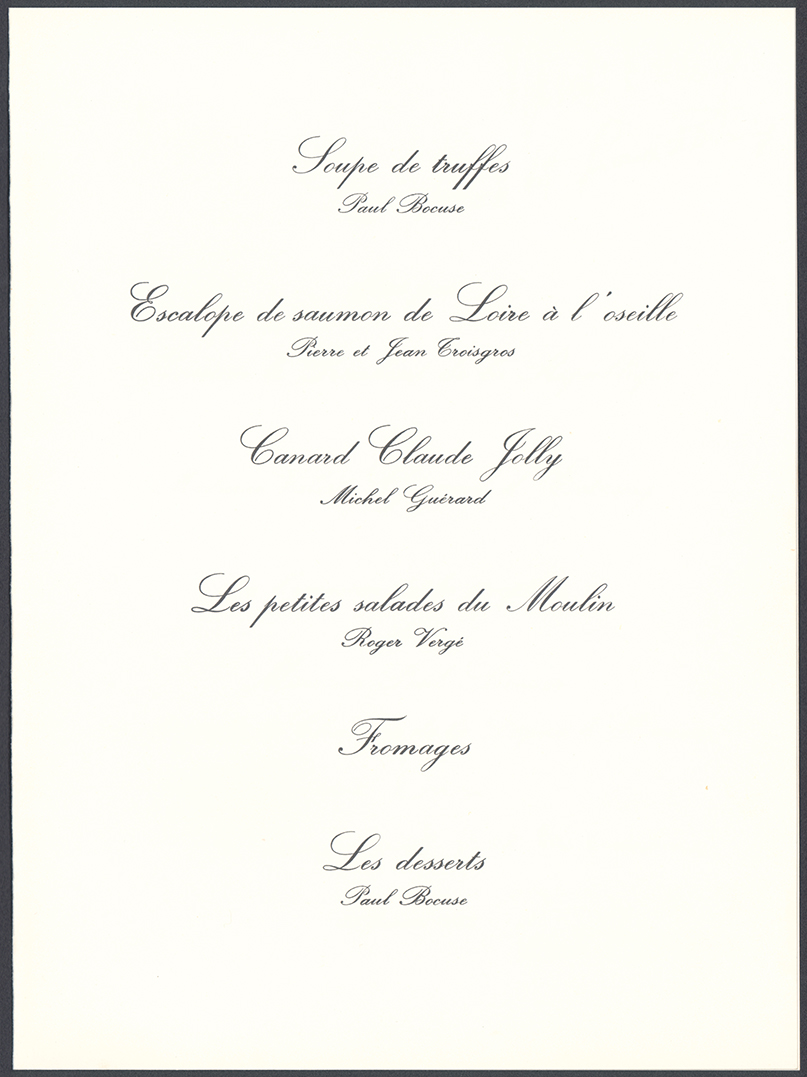 Soupe de truffes
Paul Bocuse
Escalope de saumon de Loire à l'oseille
Pierre et Jean Troisgros
Canard Claude Jolly
Michel Guérard
Les petites salades du Moulin
Roger Vergé
Fromages
Les desserts
Paul Bocuse